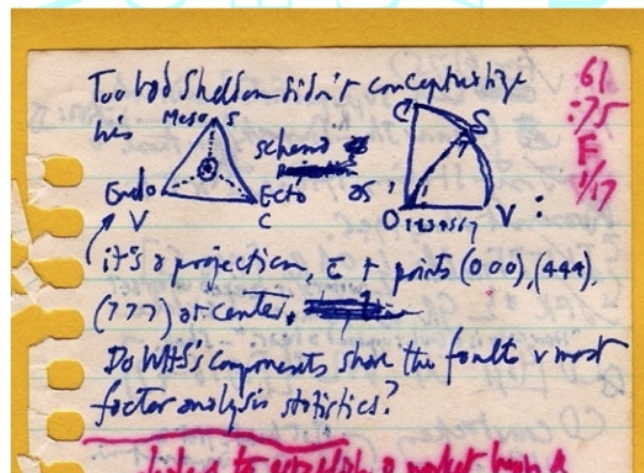 Too bad Sheldon didn't conceptualize
his
Meso S
schema
as
Endo
V
Ecto
C
C
S
O 1 2 3 4 5 6 7 V :
61
:75
F
1/17
it's a projection, c̄ + points (000), (444),
(777) at center.
Do WHS's components share the faults v most
factor analysis statistics?
to establish a